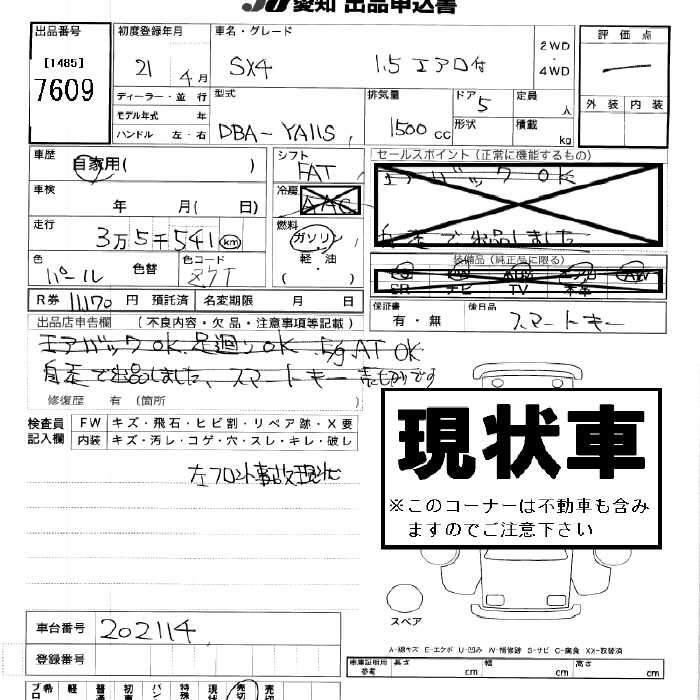 JU愛知 出品申込書
出品番号 初度登録年月 車名・グレード 2WD ・ 4WD 評価点
[1485]
7609
21 4月 SX4 1.5 エアロ付
ディーラー・並行
モデル年式 年
ハンドル 左・右
型式 DBA-YA11S
排気量 1500cc
ドア 5 定員 人
形状 積載 kg
外装 内装
車歴 自家用( )
シフト FAT
セールスポイント(正常に機能するもの)
エアバック OK
自走で出品しました
車検 年 月( 日)
冷房 AAC
走行 3万5千541km
燃料 ガソリン ・ 軽油 ( )
色 パール 色替 色コード
装備品(純正品に限る)
SR ナビ TV 本革 AW
R券 11170円 預託済 名変期限 月 日
保証書 有・無 後日品 スマートキー
出品店申告欄 (不良内容・欠品・注意事項等記載)
エアバックOK 足廻りOK AT OK
自走で出品しました、スマートキー
修復歴 有(箇所
検査員記入欄 FW キズ・飛石・ヒビ割・リペア跡・X要
内装 キズ・汚レ・コゲ・穴・スレ・キレ・破レ
左フロント事故現状
現状車
※このコーナーは不動車も含み
ますのでご注意下さい
スペア
車台番号 202114
A-線キズ E-エクボ U-凹み W-補修跡 S-サビ C-腐食 XX-交換済
登録番号
車庫証明用参考 長さ cm 幅 cm 高さ cm